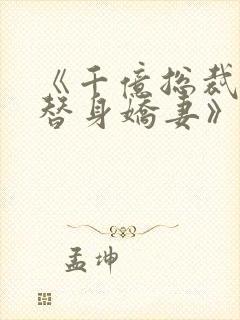 《千億總裁
替身嬌妻》
孟坤